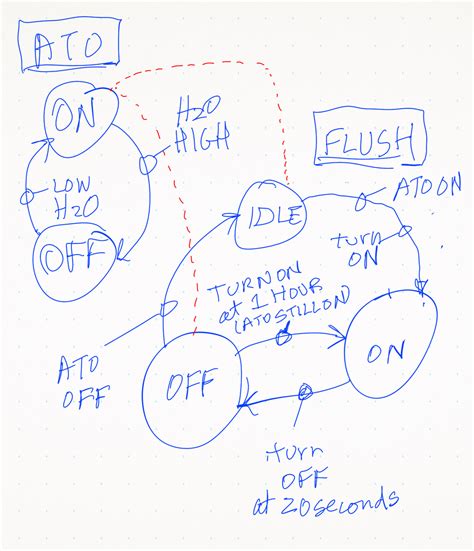 ATO
ON
H2O
HIGH
LOW
H2O
OFF
FLUSH
IDLE
ATO ON
turn
ON
TURN ON
at 1 HOUR
(ATO STILL ON)
ATO
OFF
OFF
ON
turn
OFF
at 20 seconds